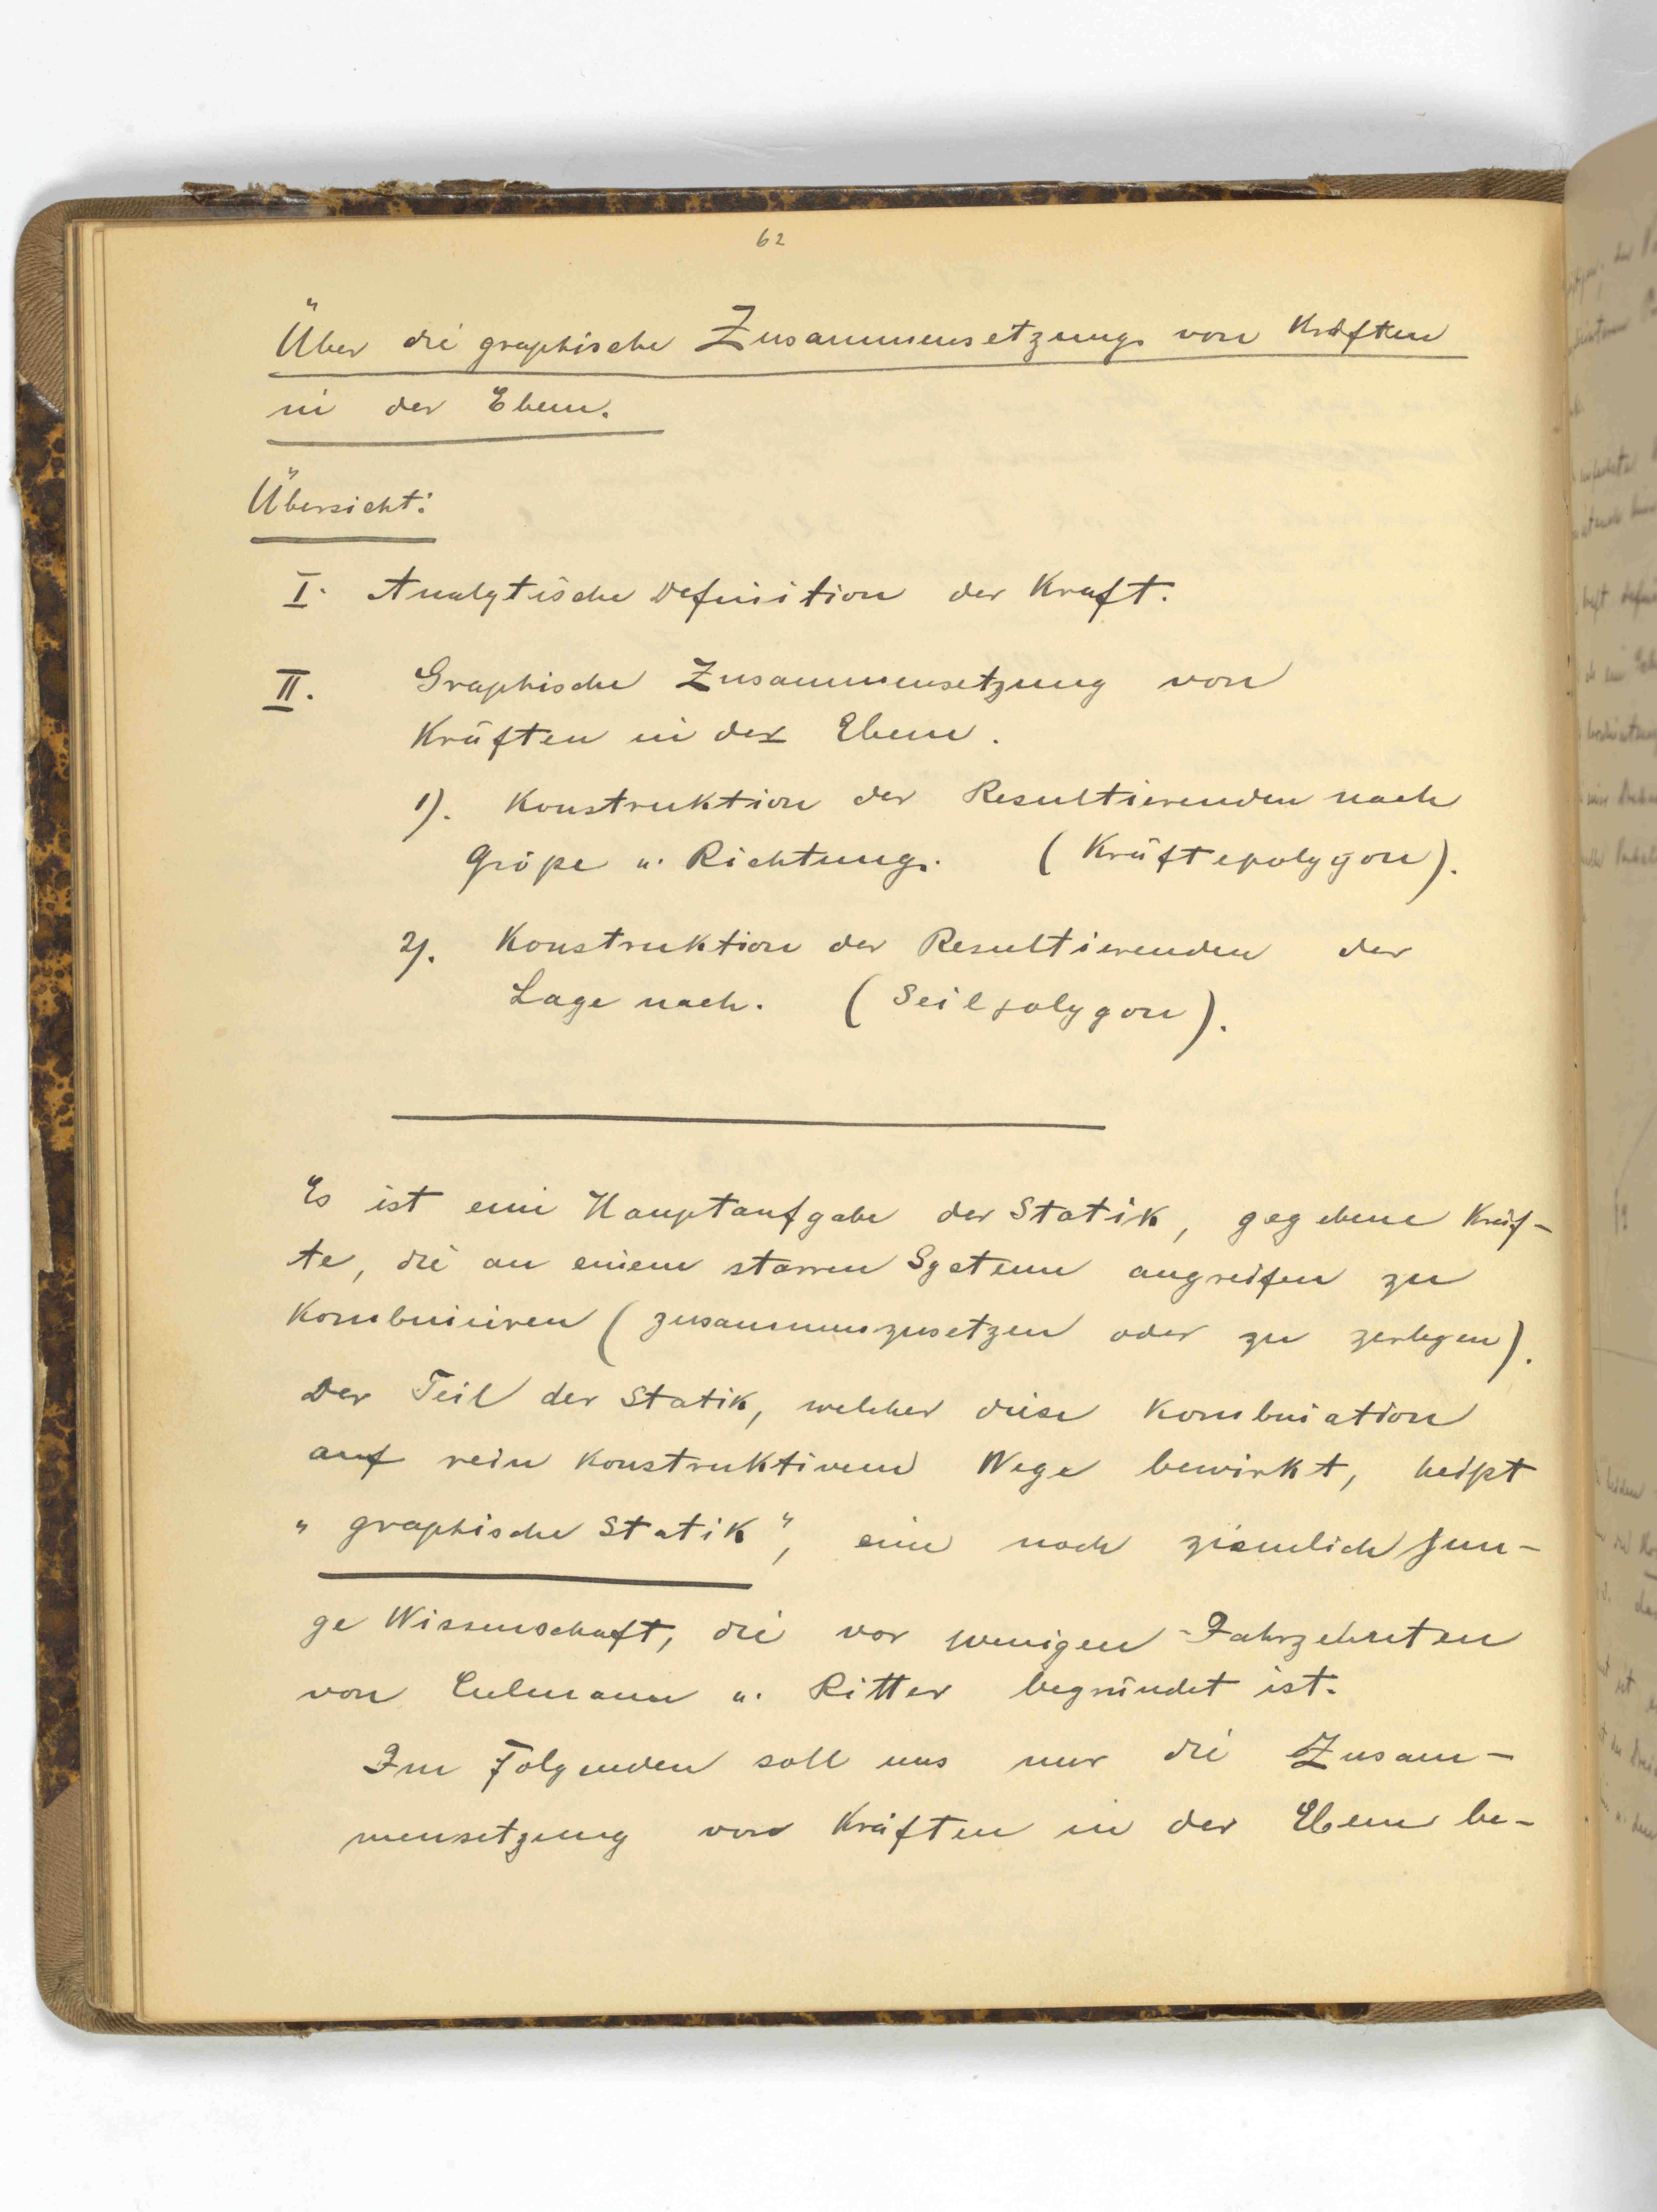 62
Über die graphische Zusammensetzung von Kräften
in der Ebene.
Übersicht:
I. Analytische Definition der Kraft.
II. Graphische Zusammensetzung von
Kräften in der Ebene.
1). Konstruktion der Resultierenden nach
Größe u. Richtung. (Kräftepolygon).
2). Konstruktion der Resultierenden der
Lage nach. (Seilpolygon).
Es ist eine Hauptaufgabe der Statik, gegebene Kräf-
te, die an einem starren System angreifen zu
kombiniren (zusammenzusetzen oder zu zerlegen).
Der Teil der Statik, welcher diese Kombination
auf rein konstruktivem Wege bewirkt, heißt
"graphische Statik", eine noch ziemlich jun-
ge Wissenschaft, die vor wenigen Jahrzehnten
von Culmann u. Ritter begründet ist.
Im Folgenden soll uns nur die Zusam-
mensetzung von Kräften in der Ebene be-